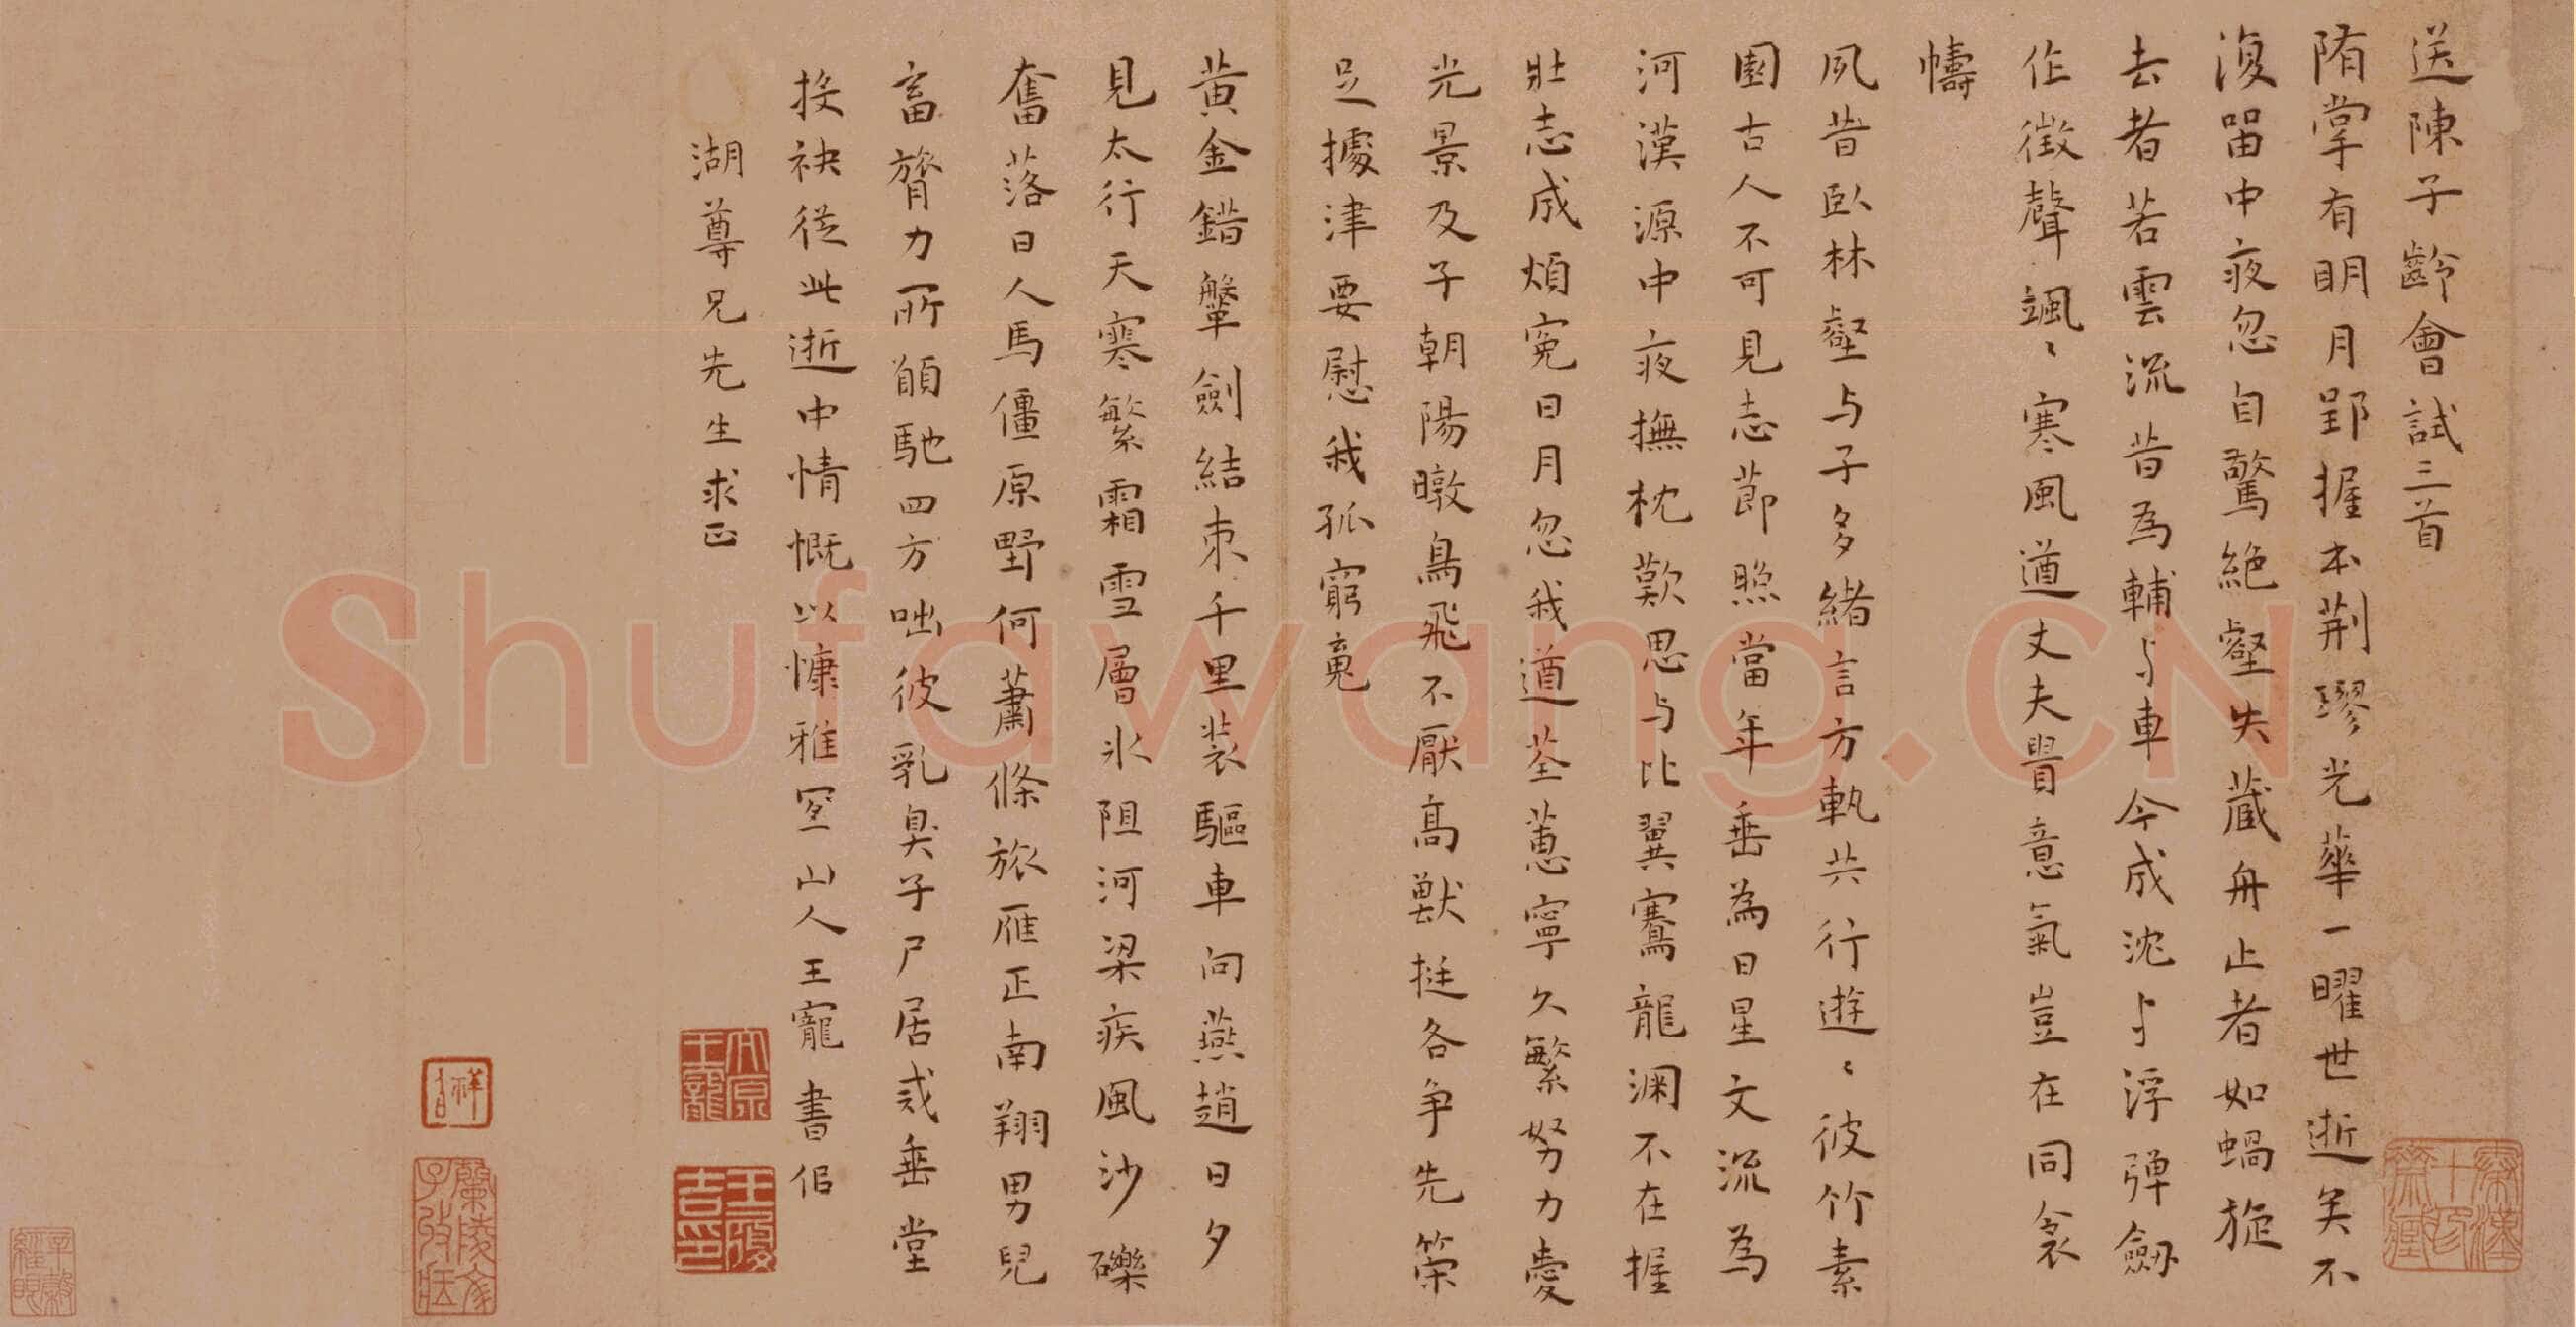 送陳子齡會試三首
隋掌有明月郢握本荆璆光華一曜世逝矣不
復留中夜忽自驚絶壑失藏舟止者如蝸旋
去者若雲流昔為輔与車今成沈与浮彈劔
作徵聲颯〻寒風遒丈夫貴意氣豈在同衾
幬
夙昔臥林壑与子多緒言方執共行遊〻彼竹素
園古人不可見志節照當年垂為日星文流為
河漢源中夜撫枕歎思与比翼騫龍淵不在握
壯志成煩寃日月忽我遒荃蕙寧久繁努力愛
光景及子朝陽暾鳥飛不厭高獸挺各争先策
足據津要慰我孤窮䰟
黄金錯鞶劍結束千里装驅車向燕趙日夕
見太行天寒繁霜雪層氷阻河梁疾風沙礫
奮落日人馬僵原野何蕭條旅雁正南翔男兒
富膂力所願馳四方咄彼乳臭子尸居戒垂堂
投袂從此逝中情慨以慷雅宜山人王寵書侣
湖尊兄先生求正
太原王寵
王履吉印
蘭陵文子收藏
Shufawang.CN